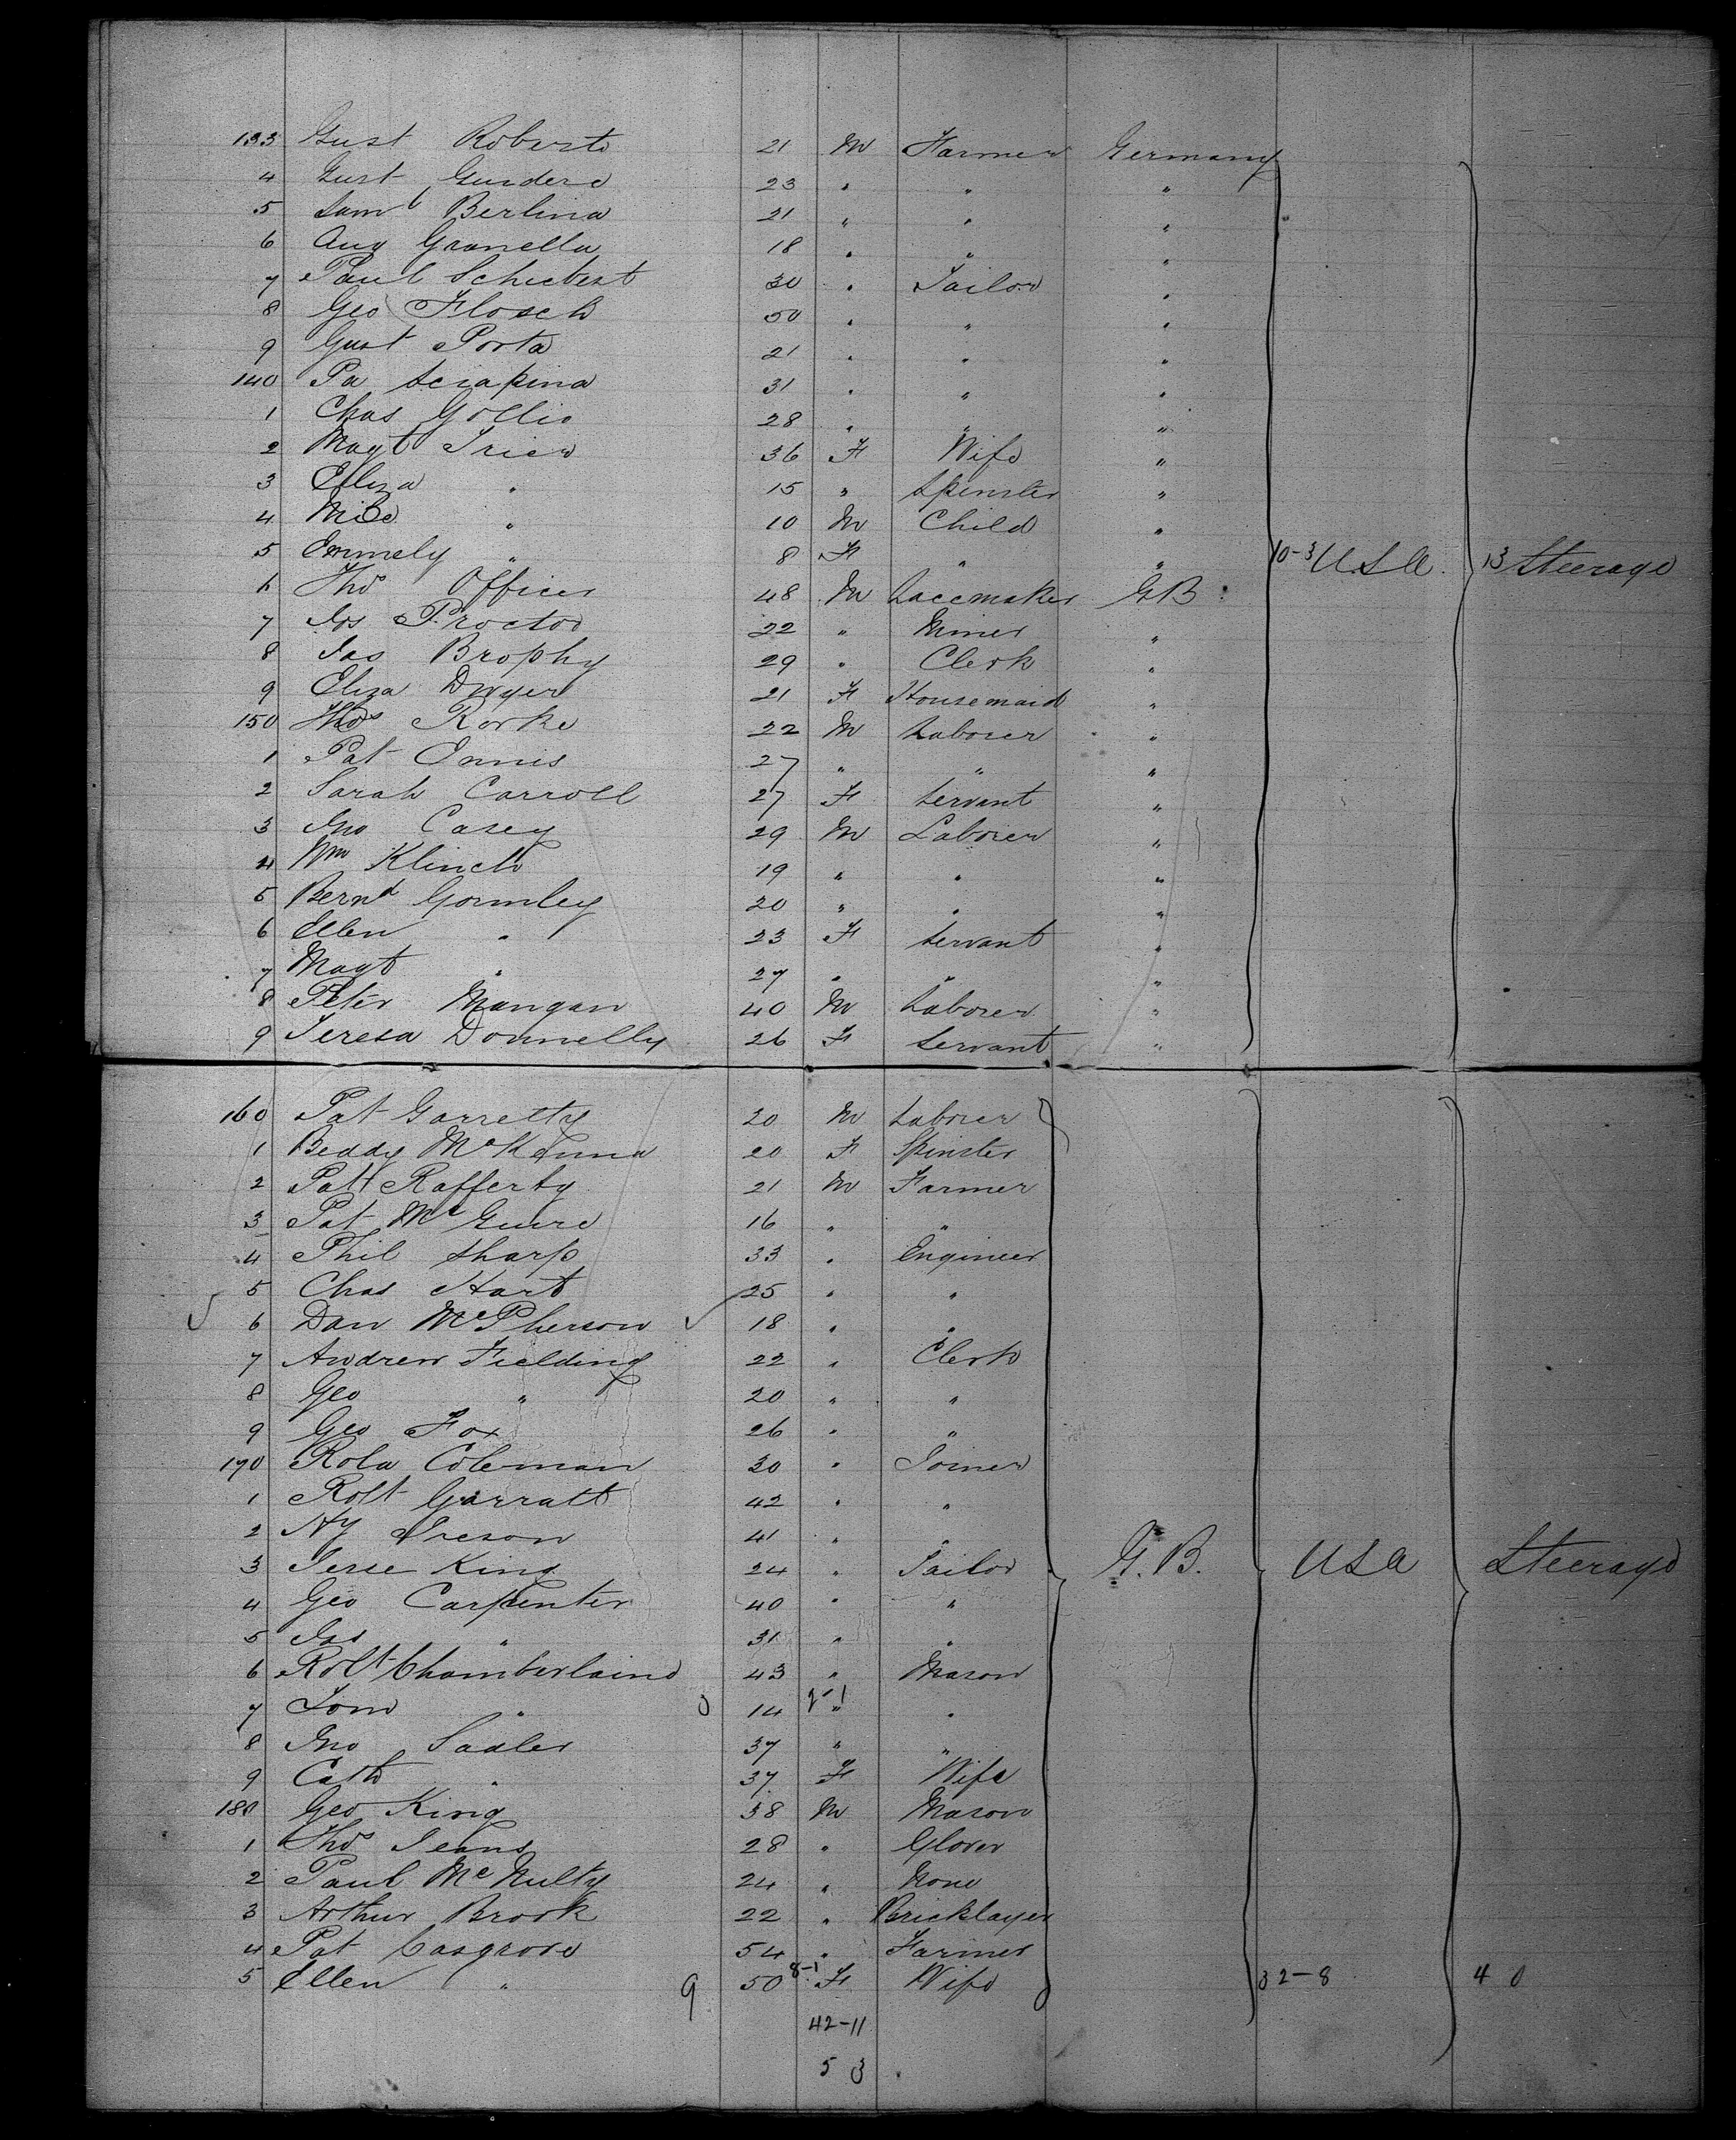 133 Gust Roberts 21 M Farmer Germany
4 Gust Gundera 23 " " "
5 Saml Berlina 21 " " "
6 Aug Granella 18 " " "
7 Paul Schubert 30 " Tailor "
8 Geo Flosch 50 " " "
9 Gust Porta 21 " " "
140 Pa Scrapina 31 " " "
1 Chas Gollis 28 " " "
2 Magt Trier 36 F Wife "
3 Eliza " 15 " Spinster "
4 " 10 M Child "
5 Emmely " 8 F " " 10-3 USA. 13 Steerage
6 Thos Officer 48 M Lacemaker GB.
7 Jos Proctor 22 " Miner "
8 Jas Brophy 29 " Clerk "
9 Eliza Dwyer 21 F Housemaid "
150 Thos Rorke 22 M Laborer "
1 Pat Ennis 27 " " "
2 Sarah Carroll 27 F Servant "
3 Jno Casey 29 M Laborer "
4 Wm Klinch 19 " " "
5 Bernd Gormley 20 " " "
6 Ellen " 23 F Servant "
7 Magt " 27 " " "
8 Peter Mangan 40 M Laborer "
9 Teresa Donnelly 26 F Servant "
160 Pat Garretty 20 M Laborer
1 Beddy McKenna 20 F Spinster
2 Patt Rafferty 21 M Farmer
3 Pat McGuire 16 " "
4 Phil Sharp 33 " Engineer
5 Chas Hart 25 " "
6 Dan McPherson 18 " "
7 Andrew Fielding 22 " Clerk
8 Geo " 20 " "
9 Geo Fox 26 " "
170 Coleman 30 " Joiner
1 Robt Garratt 42 " "
2 Hy Treson 41 " "
3 Jesse King 24 " Tailor G.B. USA Steerage
4 Geo Carpenter 40 " "
5 Jas " 31 " "
6 Robt Chamberlaine 43 " Mason
7 Tom " 14 " "
8 Jno Sadler 37 " "
9 Cath " 37 F Wife
180 Geo King 38 M Mason
1 Thos Jeans 28 " Glover
2 Paul McNulty 24 " None
3 Arthur Brook 22 " Bricklayer
4 Pat Casgrove 54 " Farmer
5 Ellen " 9 50 8-1 F Wife 32-8 40
42-11
53